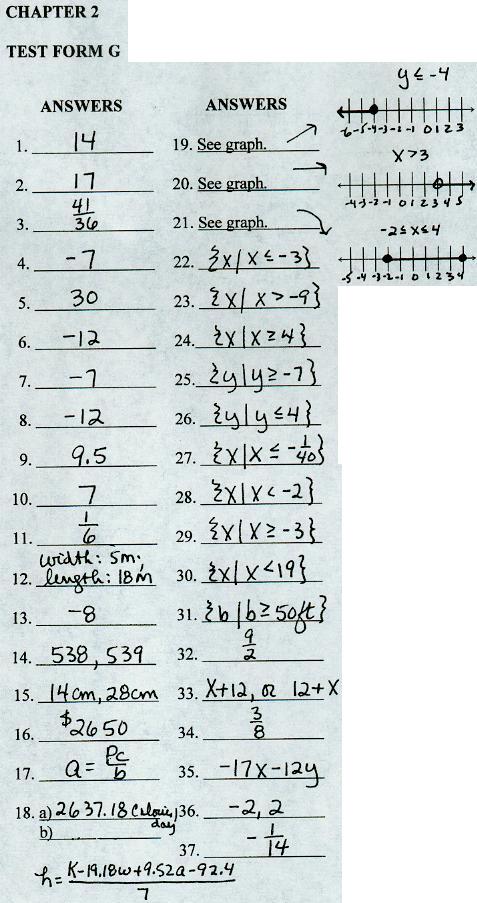 CHAPTER 2
TEST FORM G
ANSWERS
1. 14
2. 17
3. 41/36
4. -7
5. 30
6. -12
7. -7
8. -12
9. 9.5
10. 7
11. 1/6
12. width: 5m; length: 18m
13. -8
14. 538, 539
15. 14cm, 28cm
16. $2650
17. a = Pc/b
18. a) 2637.18 Calories/day
b)
h = K-19.18w+9.52a-92.4/7
ANSWERS
19. See graph.
20. See graph.
21. See graph.
22. {x|x≤-3}
23. {x|x>-9}
24. {x|x≥4}
25. {y|y≥-7}
26. {y|y≤4}
27. {x|x≤-1/40}
28. {x|x<-2}
29. {x|x≥-3}
30. {x|x<19}
31. {b|b≥50ft}
32. 9/2
33. x+12, or 12+x
34. 3/8
35. -17x-12y
36. -2, 2
37. -1/14
y≤-4
-6-5-4-3-2-1 0 1 2 3
x>3
-4-3-2-1 0 1 2 3 4 5
-2≤x≤4
-5-4-3-2-1 0 1 2 3 4